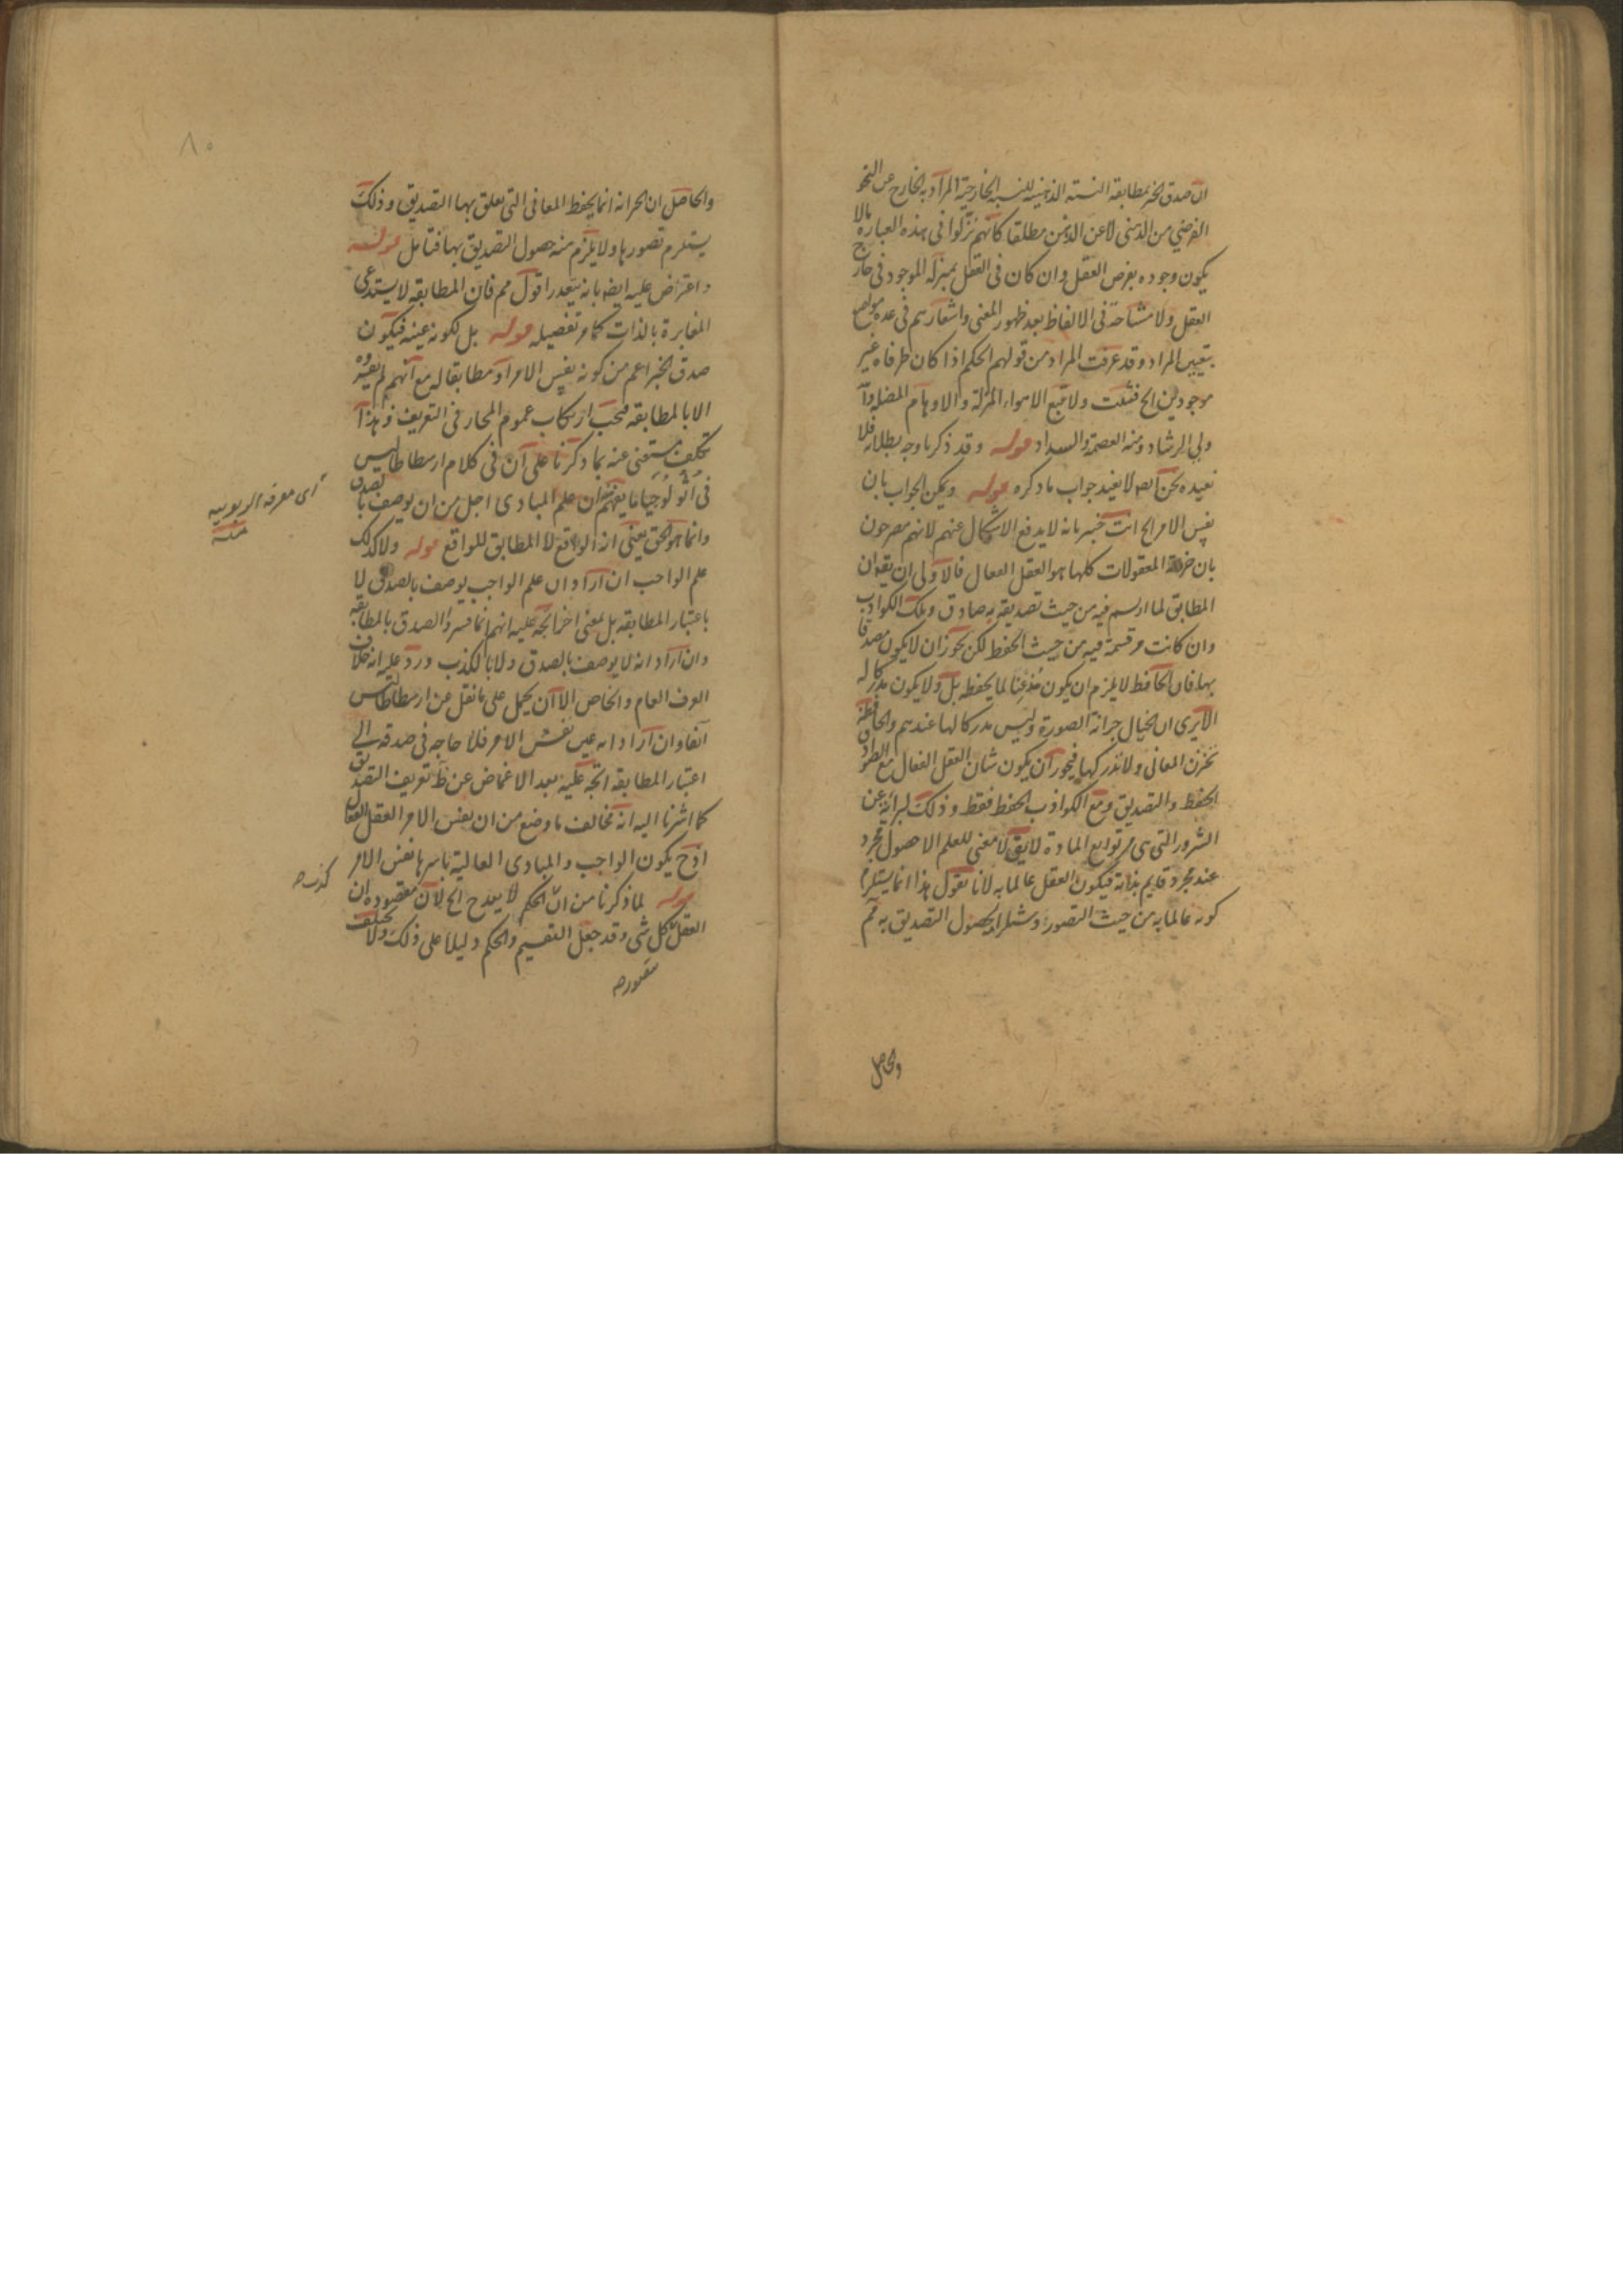 ان صدق الخبر بمطابقة النسبة الذهنية للنسبة الخارجية المراد به الخارج عن النحو
الفرضي من الذهنى لا عن الذهن مطلقا كانهم نزلوا فى هذه العبارة مالا
يكون وجوده بفرض العقل وان كان فى العقل بمنزلة الموجود فى خارج
العقل ولا مشاحة فى الالفاظ بعد ظهور المعنى واشعارهم فى عدة مواضع
بتعيين المراد وقد عرفت المراد من قولهم الحكم اذا كان طرفاه غير
موجودين الخ فتثبت ولا تتبع الاهواء المزلة والاوهام المضلة والله
ولى الرشاد ومنه العصمة والسداد قوله وقد ذكرنا وجه بطلانه فلا
نعيده نحن ايضا لا نعيد جواب ما ذكره قوله ويمكن الجواب بان
نفس الامر الخ انت خبير بانه لا يدفع الاشكال عنهم لانهم مصرحون
بان خزانة المعقولات كلها هو العقل الفعال فالاولى ان يقال ان
المطابق لما ارتسم فيه من حيث تصديقه به صادق وتلك الكواذب
وان كانت مرتسمة فيه من حيث الحفظ لكن يجوز ان لا يكون مصدقا
بها فان الحافظ لا يلزم ان يكون مذعنا لما يحفظه بل ولا يكون مدركا له
الا يرى ان الخيال خزانة الصورة وليس مدركا لها عندهم والحافظة
تخزن المعانى ولا تدركها فيجوز ان يكون شان العقل الفعال مع الصوادق
الحفظ والتصديق ومع الكواذب الحفظ فقط وذلك لبرائته عن
الشرور التى هى من توابع المادة لا يق لا معنى للعلم الا حصول مجرد
عند مجرد قايم بذاته فيكون العقل عالما به لانا نقول هذا انما يستلزم
كونه عالما به من حيث التصور لحصول التصديق به ثم
والحاصل
٨٠
والحاصل ان الخزانة انما يحفظ المعانى التى تعلق بها التصديق وذلك
يستلزم تصورها ولا يلزم منه حصول التصديق بها فتامل قوله
واعتراض عليه ايضا بانه يتعدر اقول مم فان المطابقة لا يستدعى
المغايرة بالذات كما مر تفصيله قوله بل لكونه عينه فيكون
صدق الخبر اعم من كونه نفس الامر او مطابقا له مع انهم لم يفسروه
الا بالمطابقة فيجب ارتكاب عموم المجاز فى التعريف وهذا
تكلف مستغنى عنه بما ذكرنا على ان فى كلام ارسطاطاليس
فى اثولوجيا ما يفهم ان علم المبادى اجل من ان يوصف بالصدق
وانما هو الحق يعنى انه الواقع لا المطابق للواقع قوله ولا كذلك
علم الواجب ان اراد ان علم الواجب يوصف بالصدق لا
باعتبار المطابقة بل لمعنى اخر اتجه عليه انهم انما فسروا الصدق بالمطابقة
وان اراد انه لا يوصف بالصدق ولا بالكذب ورد عليه انه خلاف
العرف العام والخاص الا ان يحمل على ما نقل عن ارسطاطاليس
آنفا وان اراد انه عين نفس الامر فلا حاجة فى صدقه الى
اعتبار المطابقة اتجه عليه بعد الاغماض عن ظ تعريف التصديق
كما اشرنا اليه انه مخالف ما وضع من ان نفس الامر العقل الفعال
اذ ح يكون الواجب والمبادى العالية باسرها نفس الامر
قوله لما ذكرنا من ان الحكم لا يقدح الخ لان مقصوده ان
العقل كل شى وقد جعل التقسيم والحكم دليلا على ذلك ولا يختلف
اى معرفة الربوبية
منه